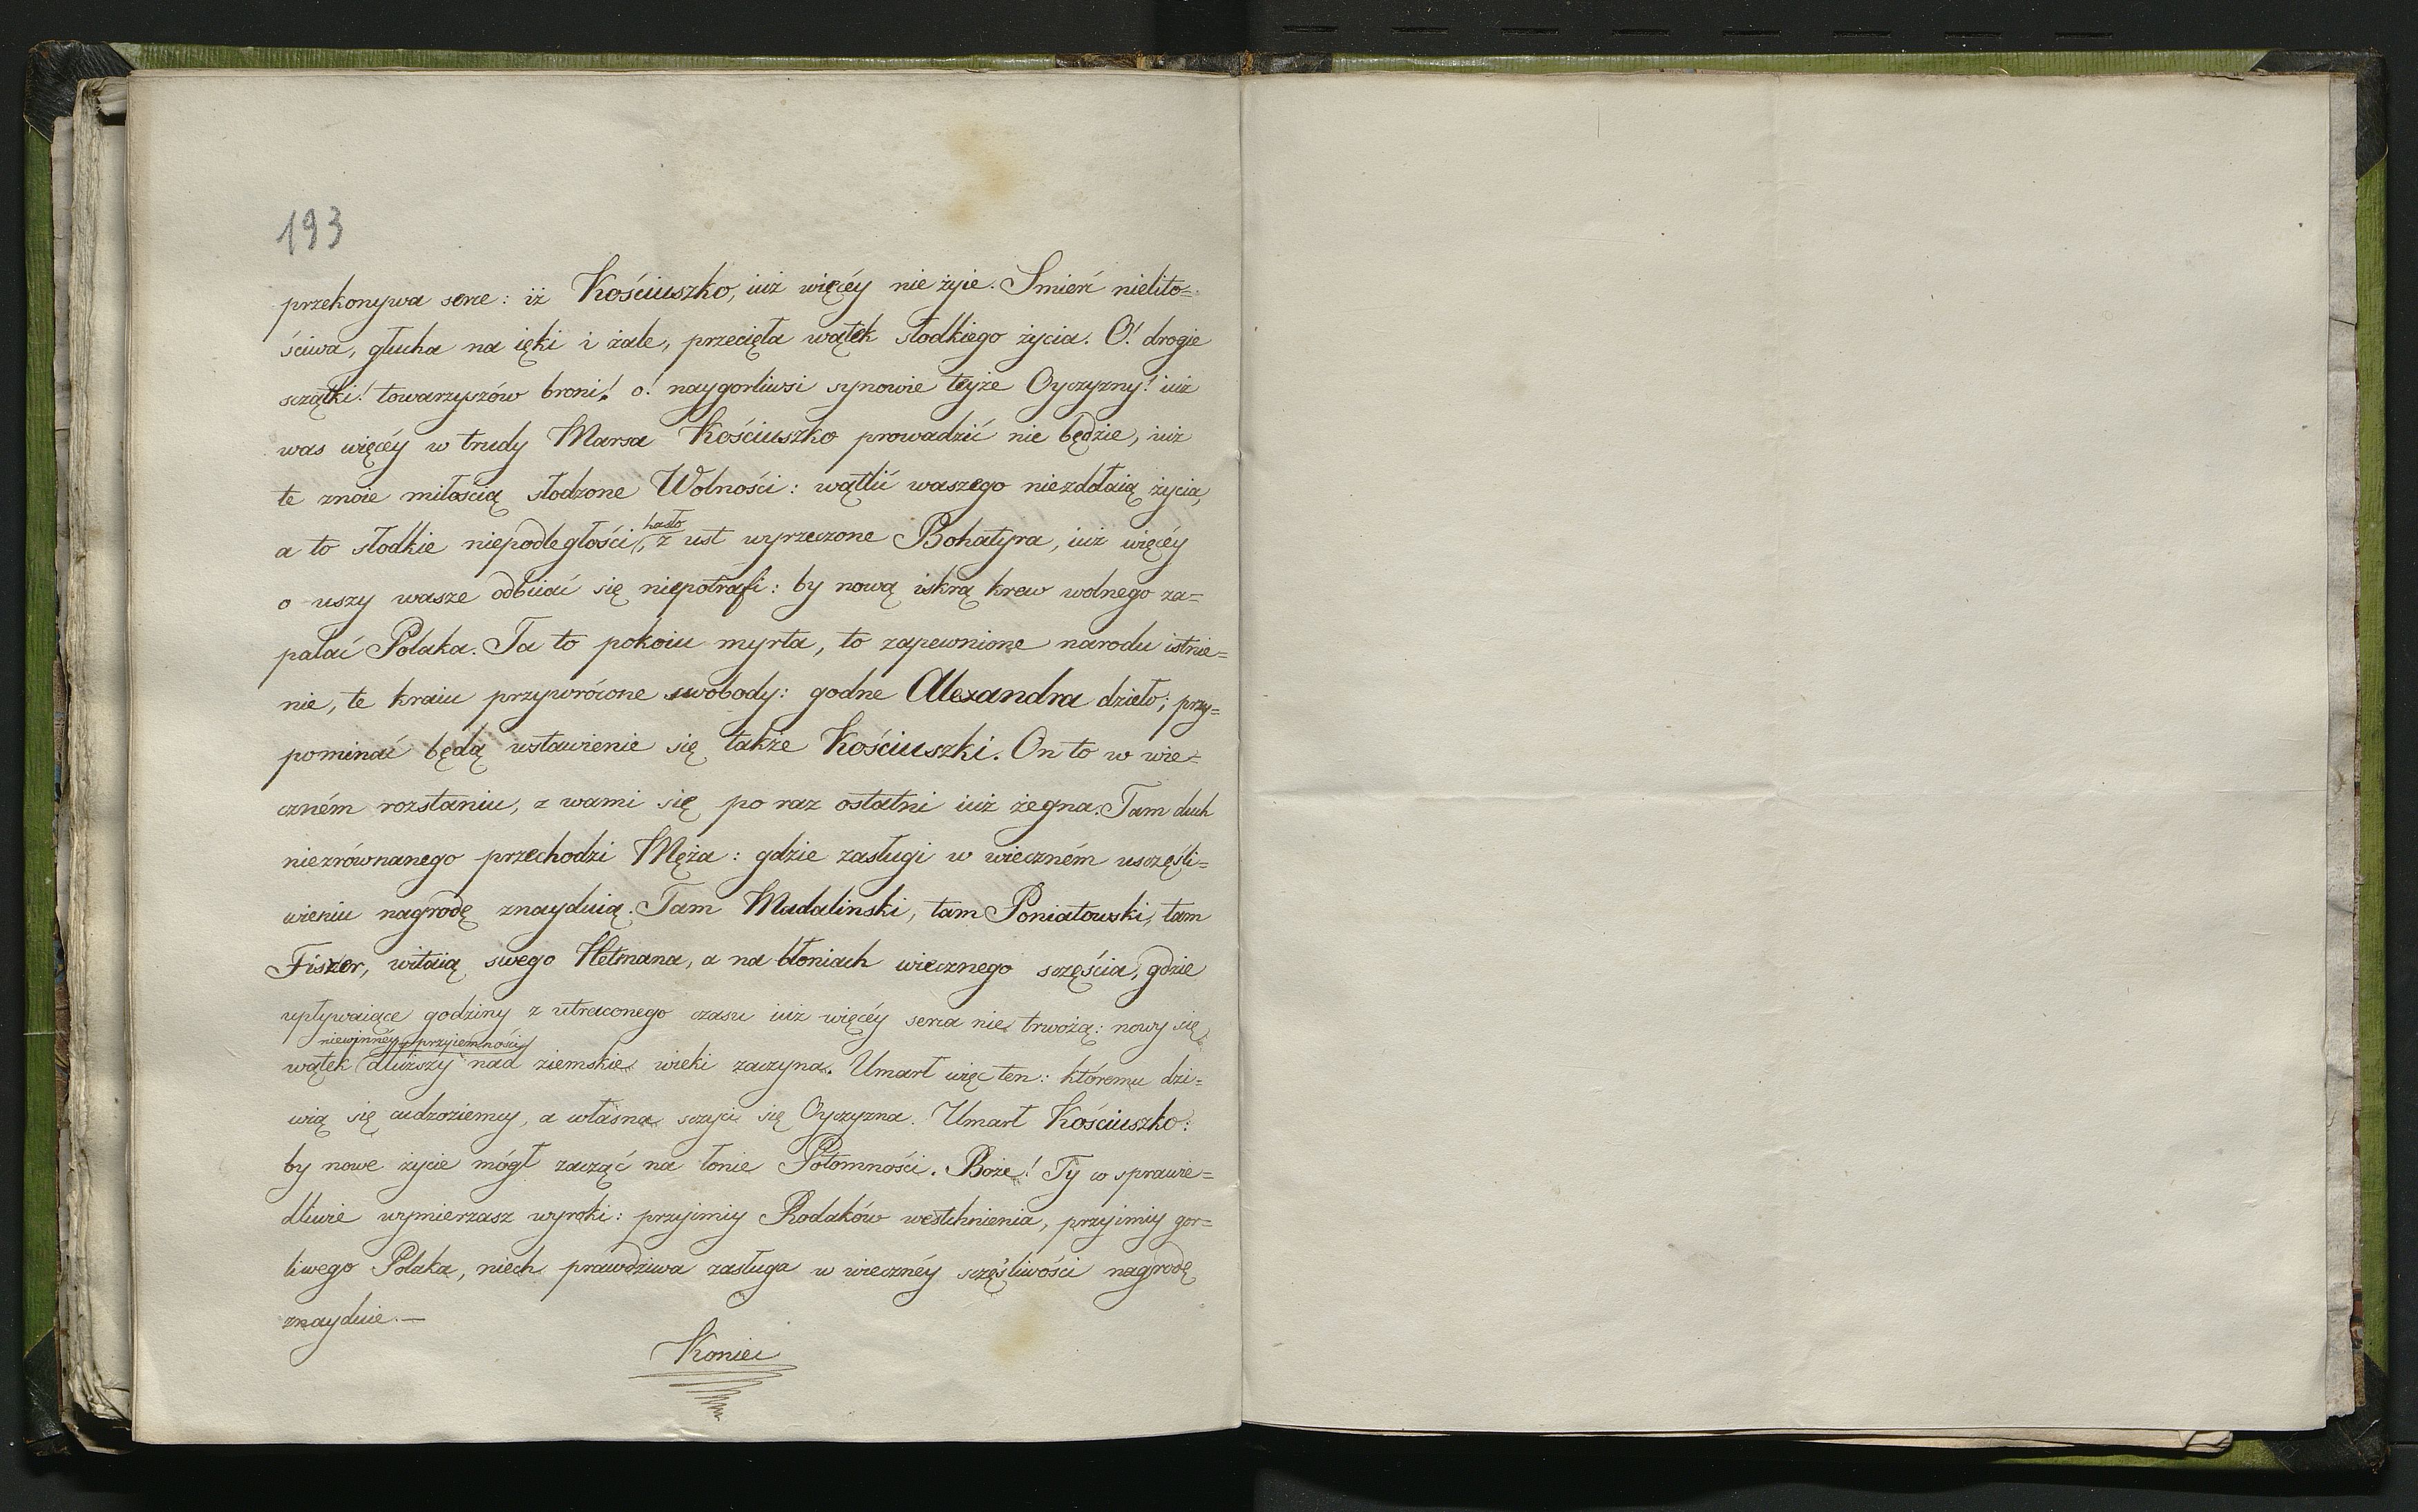 193
przekonywa serce: iż Kościuszko, iuż więcéy nie żyie. Smierć nielito=
ściwa, głucha na ięki i żale, przecięła wątek słodkiego życia. O! drogie
sczątki! towarzyszów broni! o! naygorliwsi synowie teyże Oyczyzny! iuż
was więcéy w trudy Marsa Kościuszko prowadzić nie będzie, iuż
te znoie miłością słodzone Wolności: wątlić waszego niezdołaią życia,
hasło
a to słodkie niepodległości, z ust wyrzeczone Bohatyra, iuż więcéy
o uszy wasze odbiiać się niepotrafi: by nową iskrą krew wolnego za=
palać Polaka. Ta to pokoiu myrta, to zapewnione narodu istnie=
nie, te kraiu przywrócone swobody: godne Alexandra dzieło; przy=
pominać będą wstawienie się także Kościuszki. On to w wie=
czném rozstaniu, z wami się po raz ostatni iuż żegna. Tam duch
niezrównanego przechodzi Męża: gdzie zasługi w wieczném usczęśli=
wieniu nagrodę znayduią. Tam Madalinski, tam Poniatowski, tam
Fiszer, witaią swego Hetmana, a na błoniach wiecznego sczęścia, gdzie
upływaiące godziny z utraconego czasu iuż więcéy serca nie trwożą: nowy się
niewinnéy przyiemności
wątek dłuższy nad ziemskie wieki zaczyna. Umarł więc ten: któremu dzi=
wią się cudzoziemcy, a własna sczyci się Oyczyzna. Umarł Kościuszko:
by nowe życie mógł zacząć na łonie Potomności. Boże! Ty co sprawie=
dliwie wymierzasz wyroki: przyimiy Rodaków westchnienia, przyimiy gor=
liwego Polaka, niech prawdziwa zasługa w wieczнéy sczęśliwości nagrodę
znayduie.—
Koniec